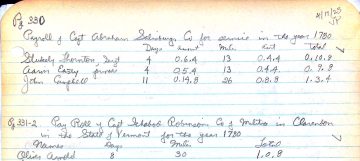 Pg 330
4/11/25
Payroll of Capt Abraham Salisburys Co for service in the year 1780
Days amt Miles amt Total
Stukely Thornton, Sergt 4 0.6.4 13 0.4.4 0.10.8
Aaron Casey private 4 0.5.4 13 0.4.4 0.9.8
John Campbell 11 0.14.8 26 0.8.8 1.3.4
Pg 331-2 Pay Roll of Capt Ichabod Robinson Co of Militia in Clarendon
in the State of Vermont for the year 1780
Names Days Miles Total
Oliver Arnold 8 30 1.0.8